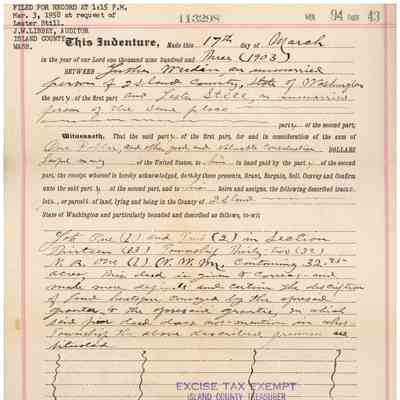 FILED FOR RECORD AT 1:15 P.M.
Mar. 3, 1950 at request of
Lester Still
J.W.LIBBEY, AUDITOR
ISLAND COUNTY
WASH.
113298
94 43
This Indenture, Made this 17th day of March
in the year of our Lord one thousand nine hundred and Three (1903)
BETWEEN an unmarried
person of Island County, State of Washington
the party of the first part and Lester Still, an unmarried
person of the same place
party of the second part;
Witnesseth, That the said party of the first part, for and in consideration of the sum of
One Dollar, and other good and valuable consideration DOLLARS
Lawful money of the United States, to him in hand paid by the party of the second
part, the receipt whereof is hereby acknowledged, do by these presents, Grant, Bargain, Sell, Convey and Confirm
unto the said party of the second part, and to his heirs and assigns, the following described tracts,
lots, or parcels of land, lying and being in the County of Island
State of Washington and particularly bounded and described as follows, to-wit
Lots One (1) and Two (2) in Section
Thirteen (13) Township Thirty two (32)
N. R. one (1) W. W.M. Containing 32.75
acres, This deed is given to correct and
made more definite and certain the description
of land heretofore conveyed by the aforesaid
grantor to the aforesaid grantee, in which
said prior deed does not mention in what
Township the above described premises are
situated
EXCISE TAX EXEMPT
ISLAND COUNTY TREASURER